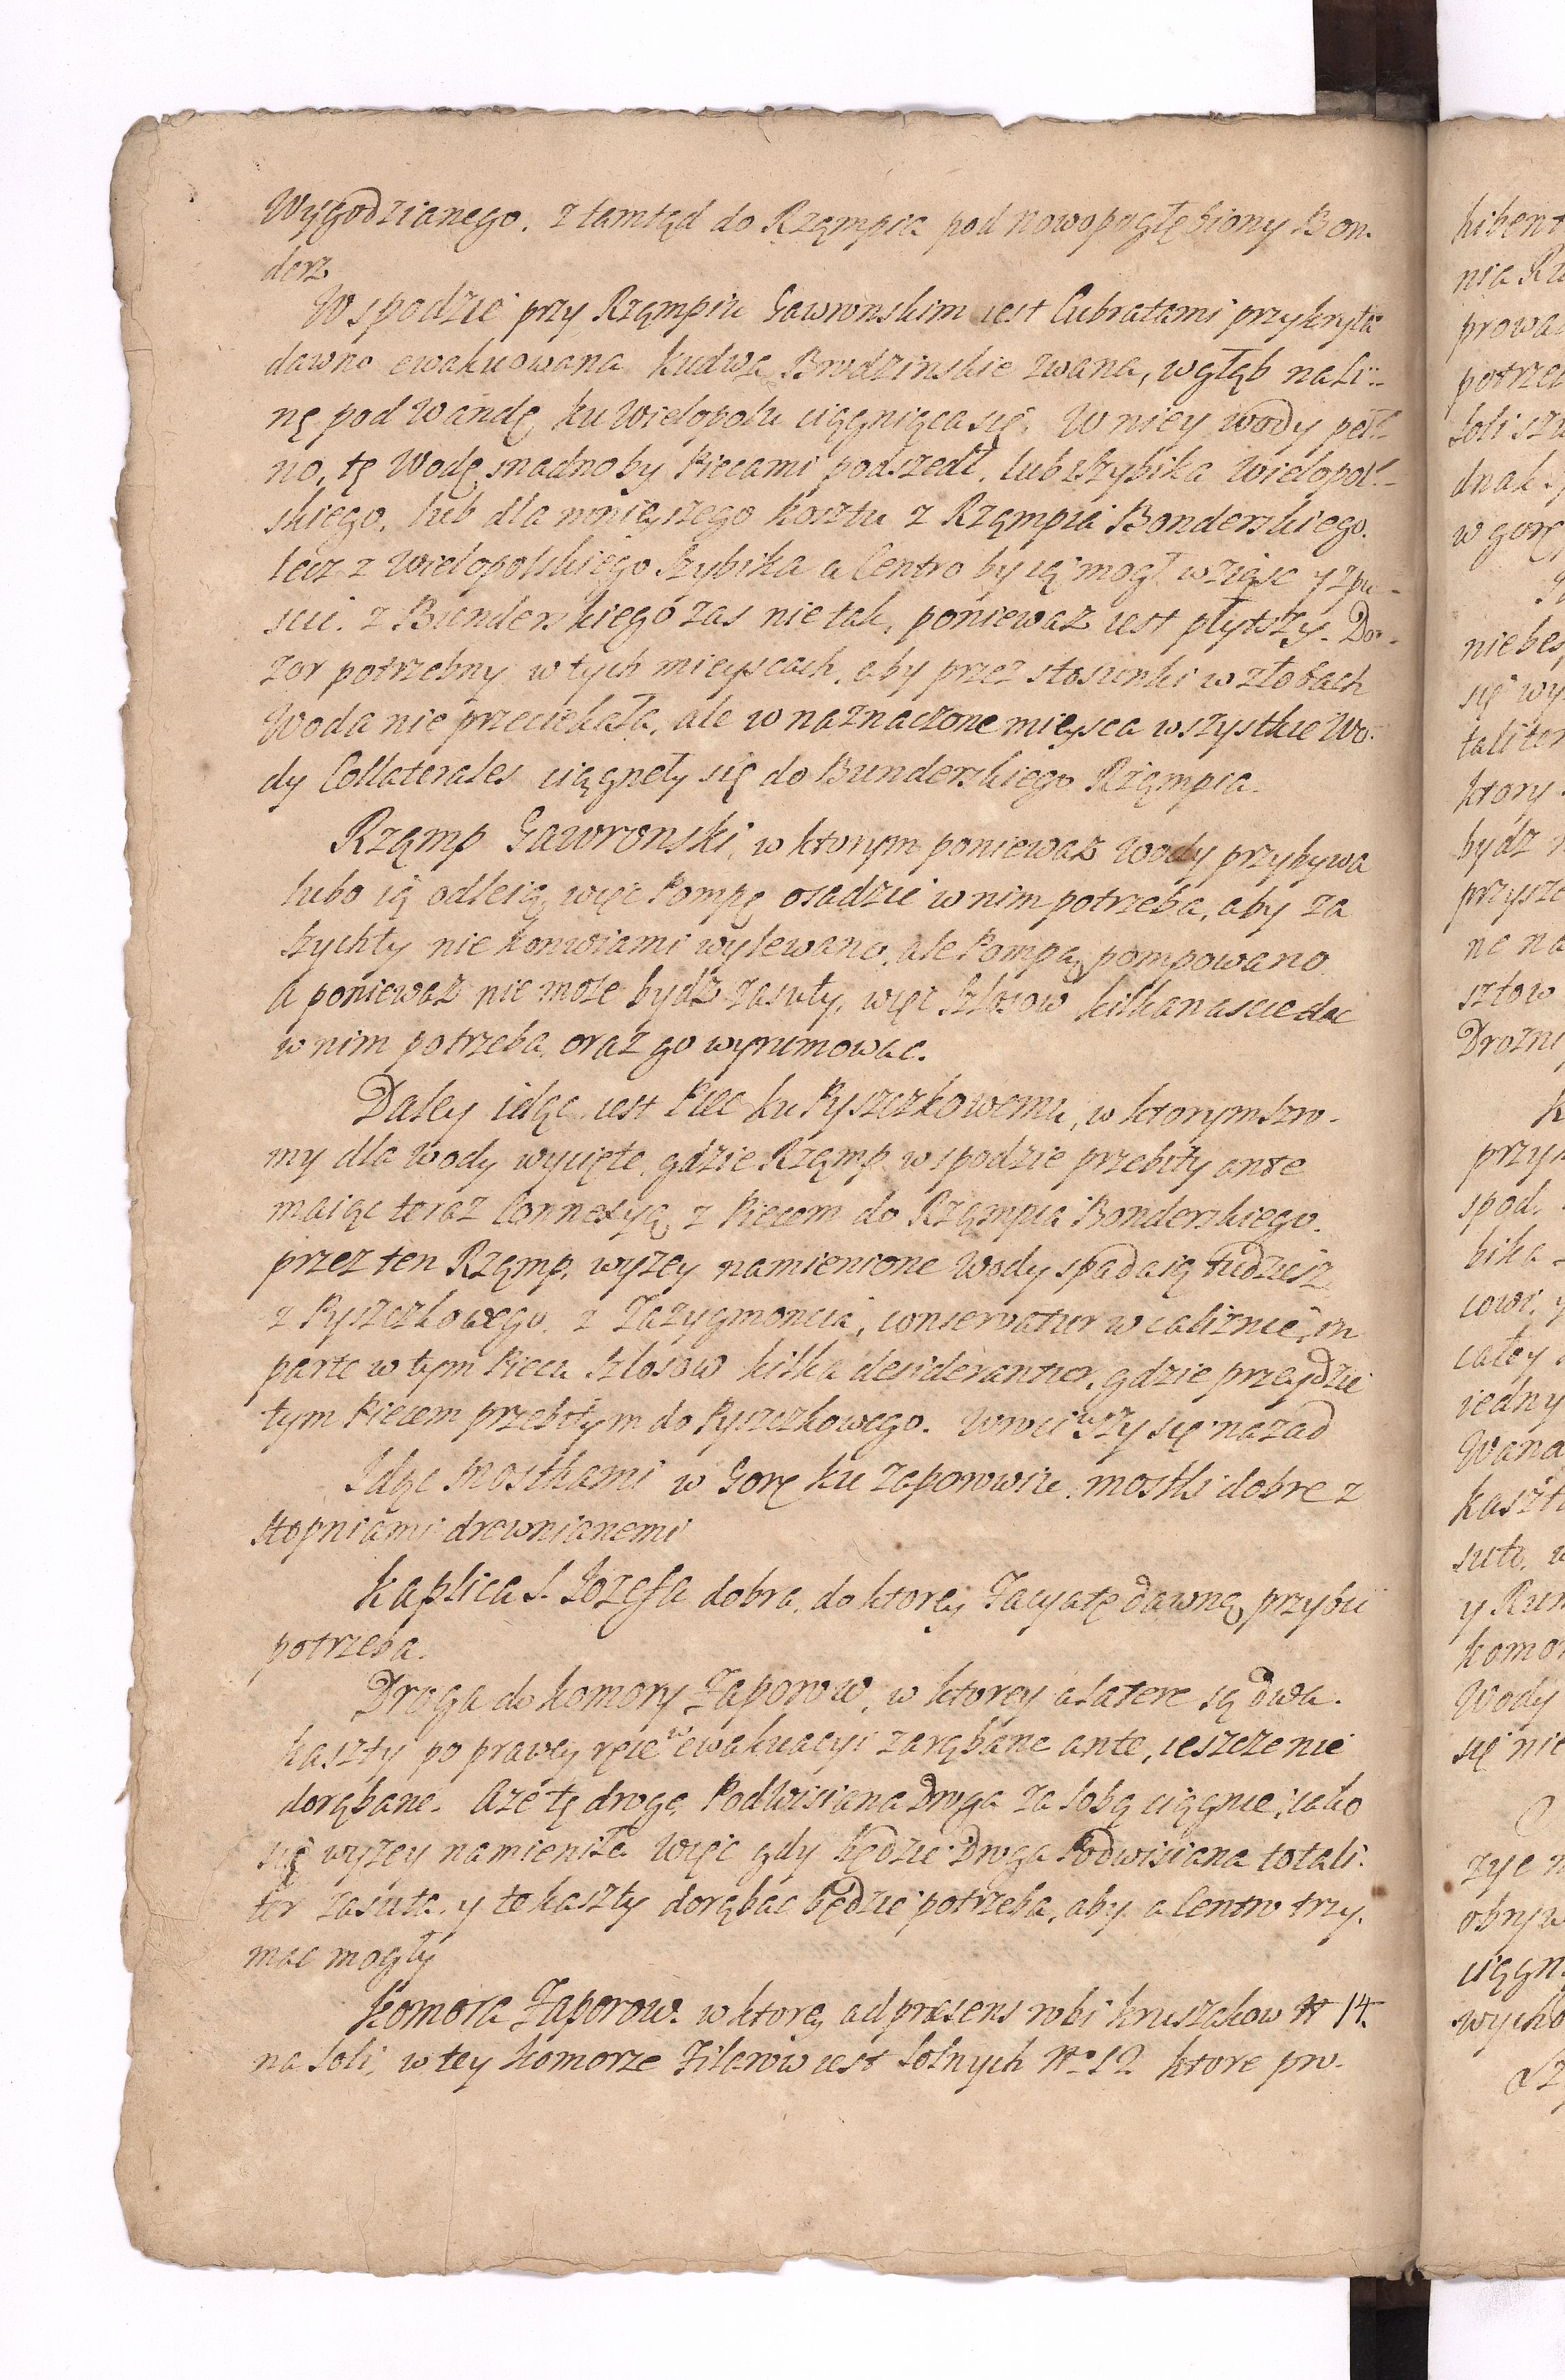 Wygodzianego. z tamtąd do Rząmpia pod nowopogłębiony Bon-
derz
W spodzie przy Rząmpiu Gawronskim iest Cubratami przykryta
dawno ewakuowana Kudwa Brudzinskie zwana, wgłąb na Li-
nę pod Wandę ku Wielopolu ciągnięca się. W niey wody peł-
no, tę Wodę snadno by Piecami podszedł, lub z Szybika Wielopol-
skiego, lub dla mnieyszego kosztu z Rząmpia Bonderskiego.
lecz z Wielopolskiego Szybika a Centro by ią mogł wziąsc y spu-
scic. z Bunderskiego zas nie tak, poniewaz iest płytszy. Do-
zor potrzebny w tych mieyscach, aby przez stosunki w złobach
Woda nie przeciekała, ale w naznaczone mieysca wszystkie Wo-
dy Collaterales ciągneły się do Bunderskiego Rząmpia.
Rząmp Gawronski, w ktorym poniewaz Wody przybywa
lubo ią odleią, więc Pompę osadzic w nim potrzeba, aby za
Szychty nie konwiami wylewano, ale Pompą pompowano.
A poniewaz nie moze bydz zasuty, więc Szlosow kilkanascie dac
w nim potrzeba, oraz go wyrumowac.
Daley idąc iest Piec ku Pyszczkowemu, w ktorym szro-
my dla Wody wycięte, gdzie Rząmp w spodzie przebity ante
maiąc teraz Connexyą z Piecem do Rząmpia Bonderskiego.
przez ten Rząmp, wyzey namienione Wody spadaią tudziesz
z Pyszczkowego, z Zazygmoncia, conservatur w caliznie, in
parte w tym Piecu Szlosow kilka desiderantur, gdzie przeydzie
tym Piecem przebitym do Pyszczkowego. Wrociwszy się nazad
Idąc Mostkami w Gorę ku Zaporowiu, mostki dobre z
stopniami drewnianemi
Kaplica S. Jozefa dobra, do ktorey Facyatę dawną przybic
potrzeba.
Droga do Komory Zaporow, w ktorey a latere są dwa
Kaszty po prawey ręce w ewakuacyi zarąbane ante, ieszcze nie
dorąbane. A ze tę drogę Podwisiana Droga za sobą ciągnie, iako
się wyzey namieniła. Więc gdy będzie Droga Podwisiana totali-
ter zasuta, y te kaszty dorąbac będzie potrzeba, aby a Centro trzy-
mac mogły
Komora Zaporow. w ktorey ad præsens robi Kruszakow N 14.
na Soli, w tey Komorze Filarow iest Solnych No 12 ktore pro-